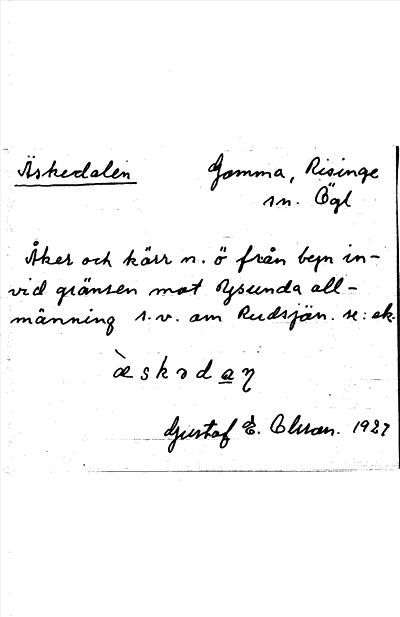 Äskedalen
Gomma, Risinge
sn. Ögl
Åker och kärr n. ö från byn in-
vid gränsen mot Rysunda all-
männing s. v. om Rudsjön. se: ek.
æ̀skədaɳ
Gustaf E. Olsson. 1927